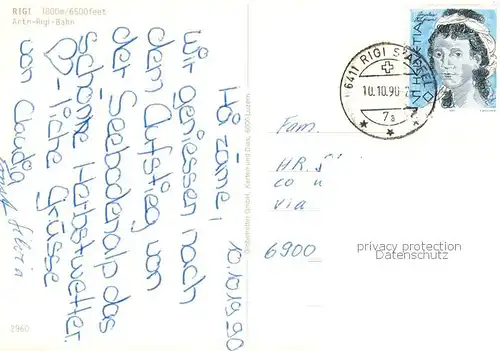 RIGI 1800m/6500feet
Arth-Rigi-Bahn
10.10.1990
Hö zäme!
Wir geniessen nach
dem Aufstieg von
der Seebodenalp das
schöne Herbstwetter.
♡-liche Grüsse
von Claudia
2960
6411 RIGI STAFFEL
10.10.90
7a
HELVETIA
Fam.
HR.
co
via
6900
privacy protection
AnsichtskartenVersand